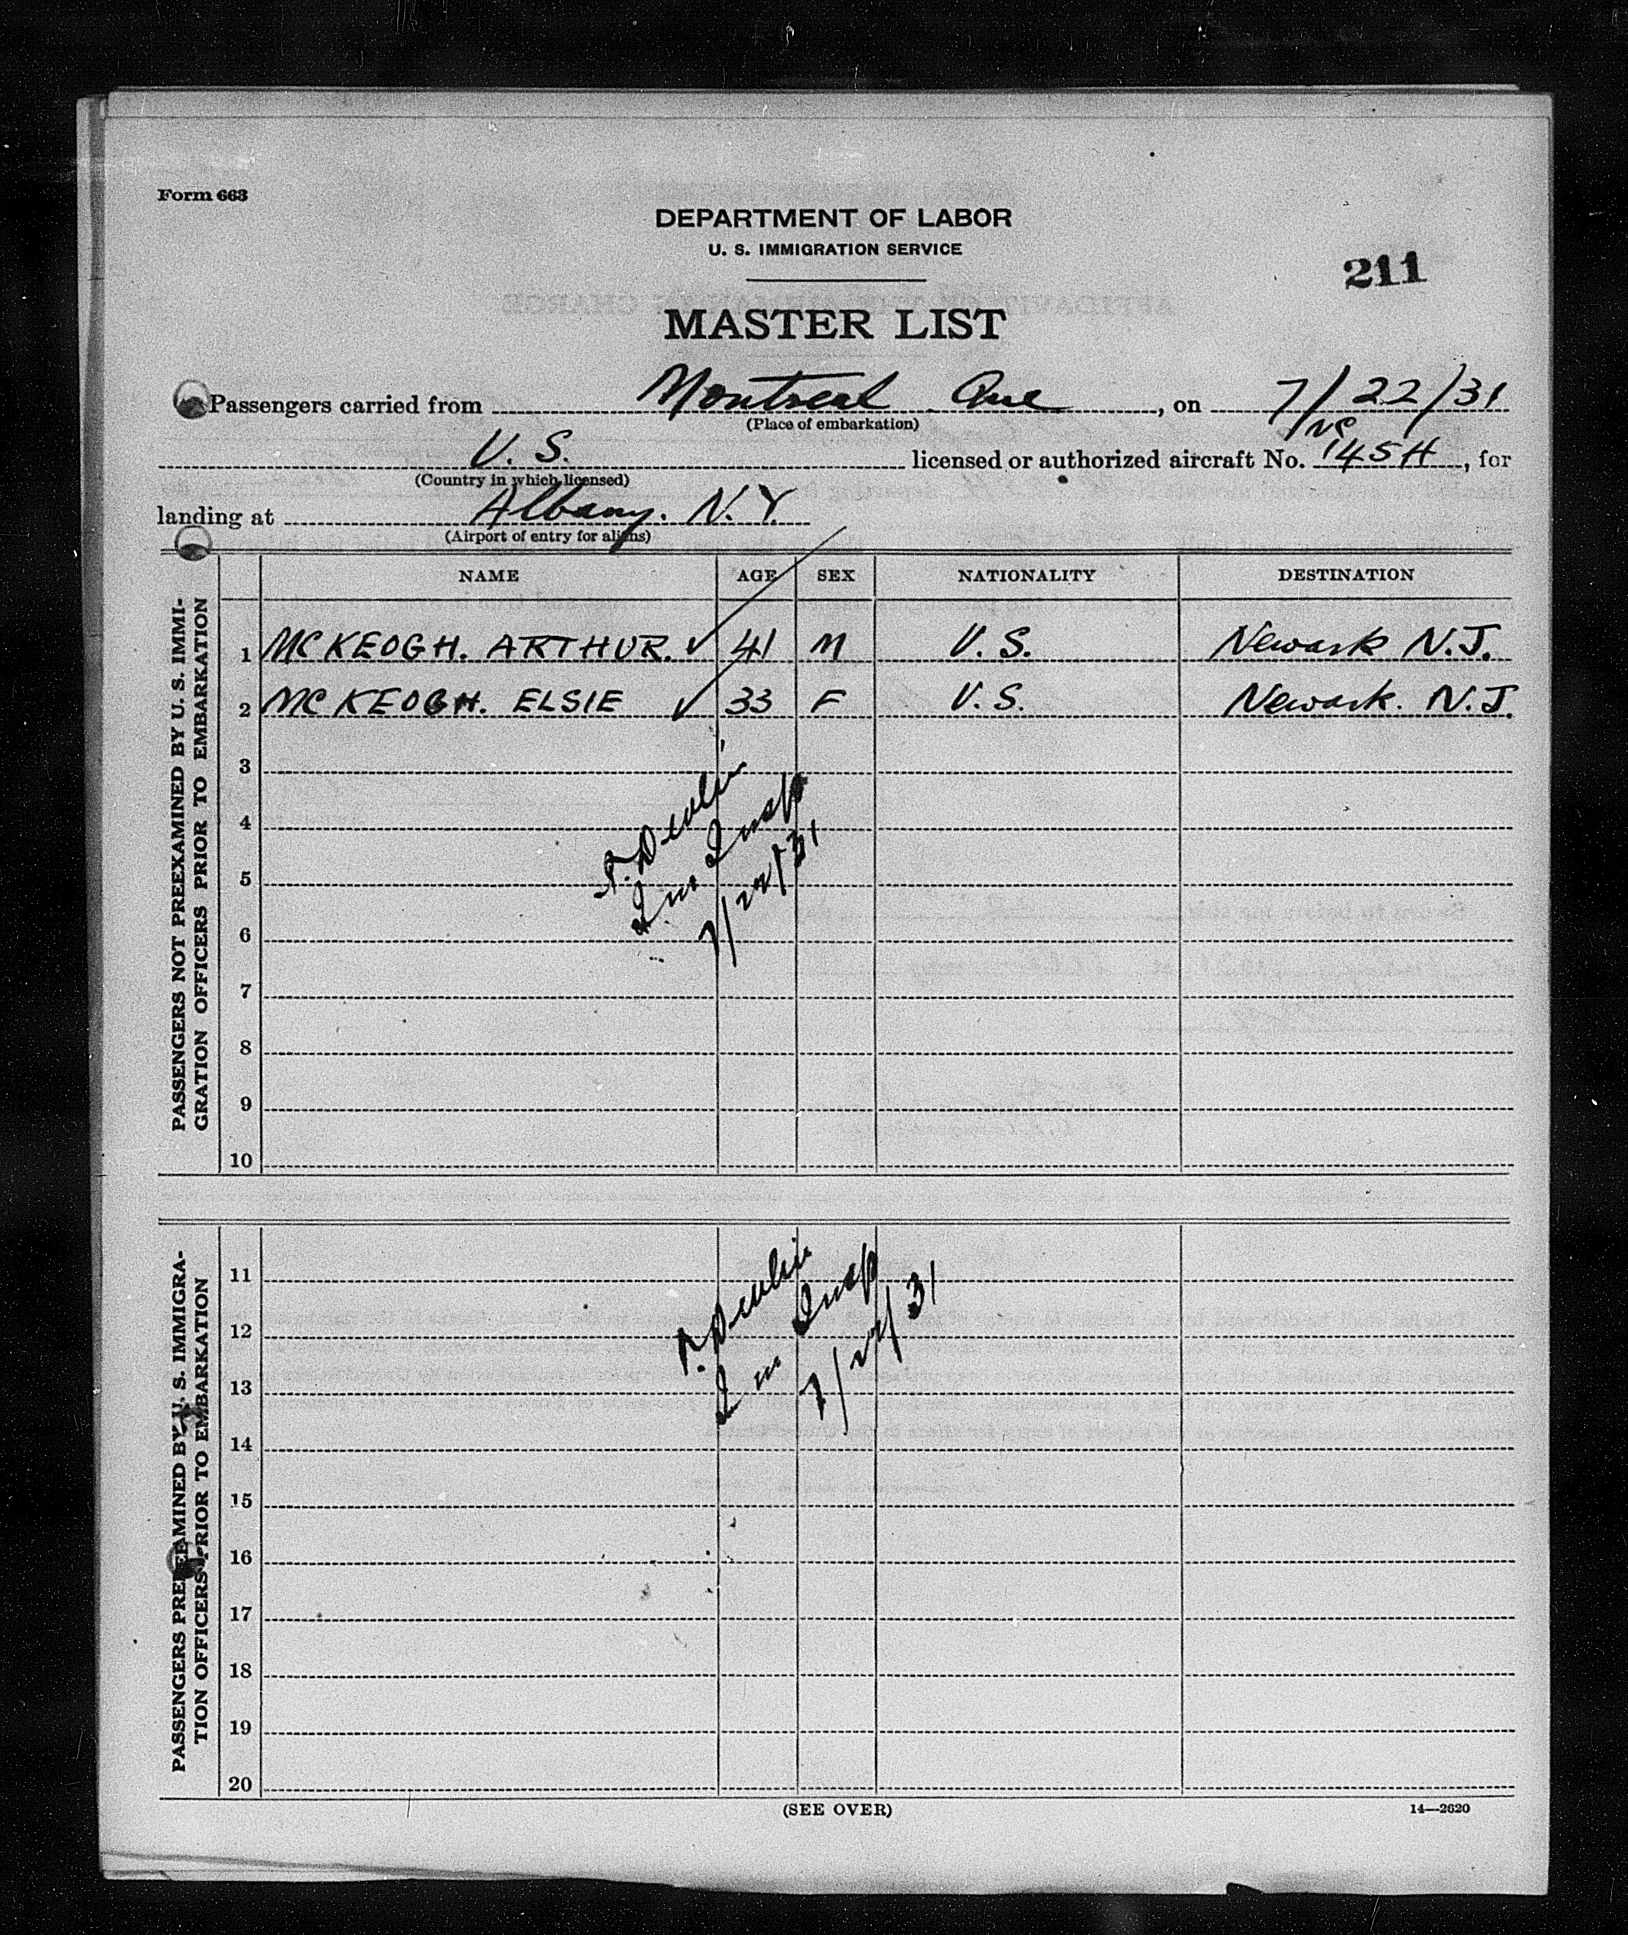 Form 663
DEPARTMENT OF LABOR
U. S. IMMIGRATION SERVICE
211
MASTER LIST
Passengers carried from Montreal Que, on 7/22/31
(Place of embarkation)
NC
U. S. licensed or authorized aircraft No. 145H, for
(Country in which licensed)
landing at Albany. N.Y.
(Airport of entry for aliens)
NAME AGE SEX NATIONALITY DESTINATION
PASSENGERS NOT PREEXAMINED BY U. S. IMMI-
GRATION OFFICERS PRIOR TO EMBARKATION
1 MCKEOGH. ARTHUR. ✓ 41 M U. S. Newark N.J.
2 MCKEOGH. ELSIE ✓ 33 F U. S. Newark. N.J.
3
4
5
6
7
8
9
10
Devlin
Im Insp
7/22/31
PASSENGERS PREEXAMINED BY U. S. IMMIGRA-
TION OFFICERS PRIOR TO EMBARKATION
11
12
13
14
15
16
17
18
19
20
Devlin
Im Insp
7/22/31
(SEE OVER)
14—2620